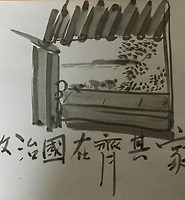 治國在齊其家